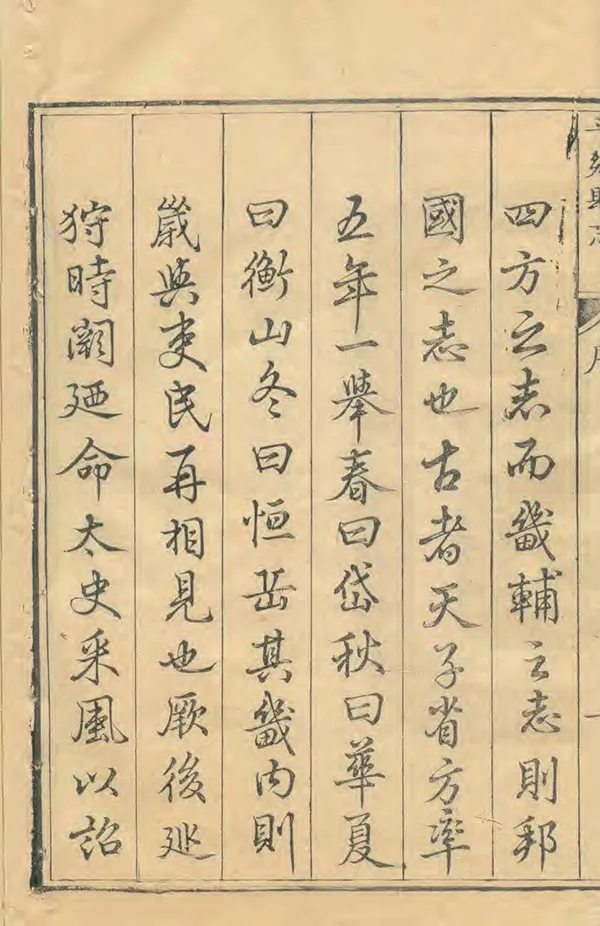 四方之志而畿輔之志則邦
國之志也古者天子省方率
五年一舉春曰岱秋曰華夏
曰衡山冬曰恒岳其畿内則
歲與吏民再相見也厥後廵
狩時闕廼命太史采風以詔